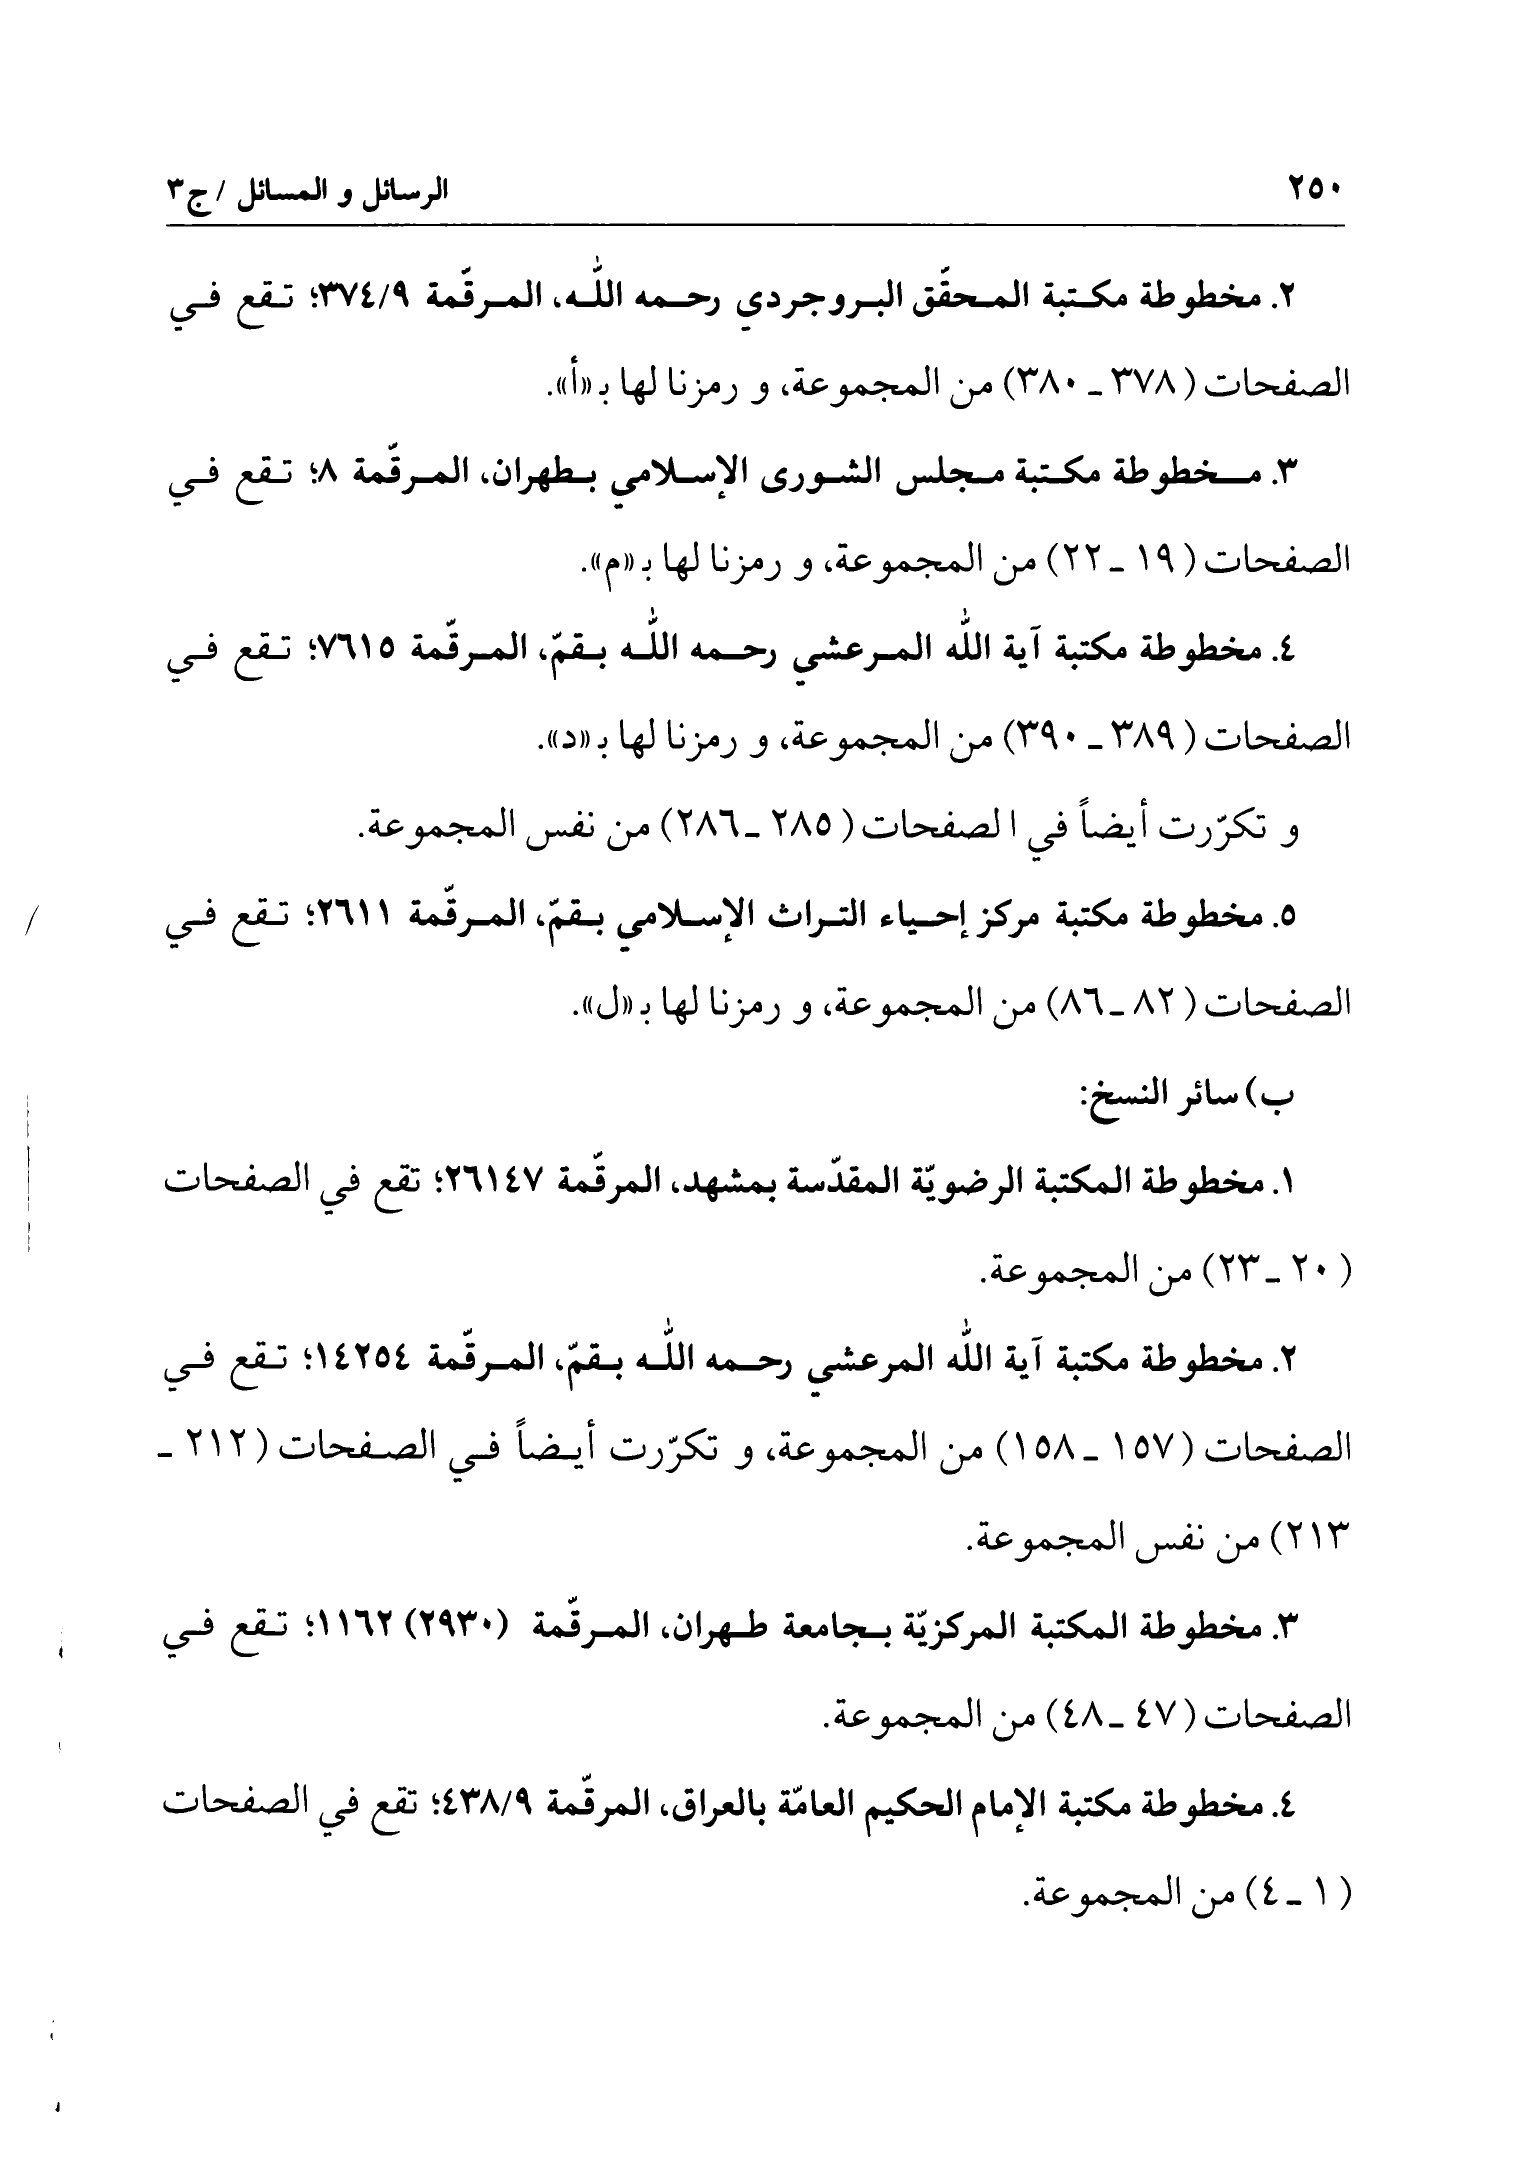 ٢٥٠ الرسائل و المسائل / ج٣
٢. مخطوطة مكتبة المحقّق البروجردي رحمه اللّٰه، المرقّمة ٣٧٤/٩؛ تقع في
الصفحات (٣٧٨ ـ ٣٨٠) من المجموعة، و رمزنا لها بـ«أ».
٣. مخطوطة مكتبة مجلس الشورى الإسلامي بطهران، المرقّمة ٨؛ تقع في
الصفحات (١٩ ـ ٢٢) من المجموعة، و رمزنا لها بـ«م».
٤. مخطوطة مكتبة آية اللّٰه المرعشي رحمه اللّٰه بقمّ، المرقّمة ٧٦١٥؛ تقع في
الصفحات (٣٨٩ ـ ٣٩٠) من المجموعة، و رمزنا لها بـ«د».
و تكرّرت أيضاً في الصفحات (٢٨٥ ـ ٢٨٦) من نفس المجموعة.
٥. مخطوطة مكتبة مركز إحياء التراث الإسلامي بقمّ، المرقّمة ٢٦١١؛ تقع في
الصفحات (٨٢ ـ ٨٦) من المجموعة، و رمزنا لها بـ«ل».
ب) سائر النسخ:
١. مخطوطة المكتبة الرضويّة المقدّسة بمشهد، المرقّمة ٢٦١٤٧؛ تقع في الصفحات
(٢٠ ـ ٢٣) من المجموعة.
٢. مخطوطة مكتبة آية اللّٰه المرعشي رحمه اللّٰه بقمّ، المرقّمة ١٤٢٥٤؛ تقع في
الصفحات (١٥٧ ـ ١٥٨) من المجموعة، و تكرّرت أيضاً في الصفحات (٢١٢ ـ
٢١٣) من نفس المجموعة.
٣. مخطوطة المكتبة المركزيّة بجامعة طهران، المرقّمة (٢٩٣٠) ١١٦٢؛ تقع في
الصفحات (٤٧ ـ ٤٨) من المجموعة.
٤. مخطوطة مكتبة الإمام الحكيم العامّة بالعراق، المرقّمة ٤٣٨/٩؛ تقع في الصفحات
(١ ـ ٤) من المجموعة.